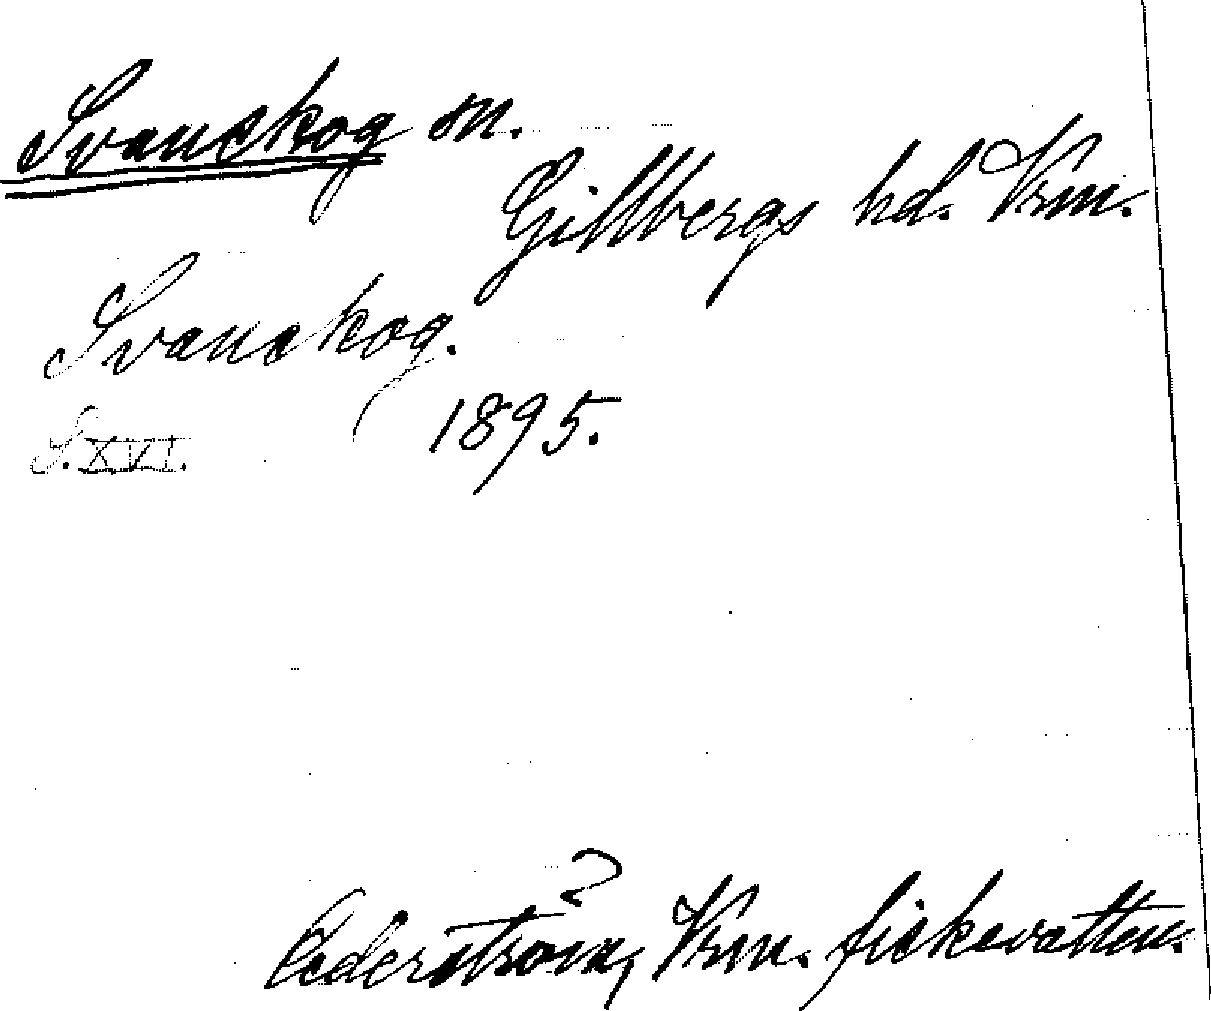 Svanskog sn.
Gillbergs hd. Vrm.
Svanskog.
1895.
S. XVI.
Cederström, Vrm. fiskevatten.